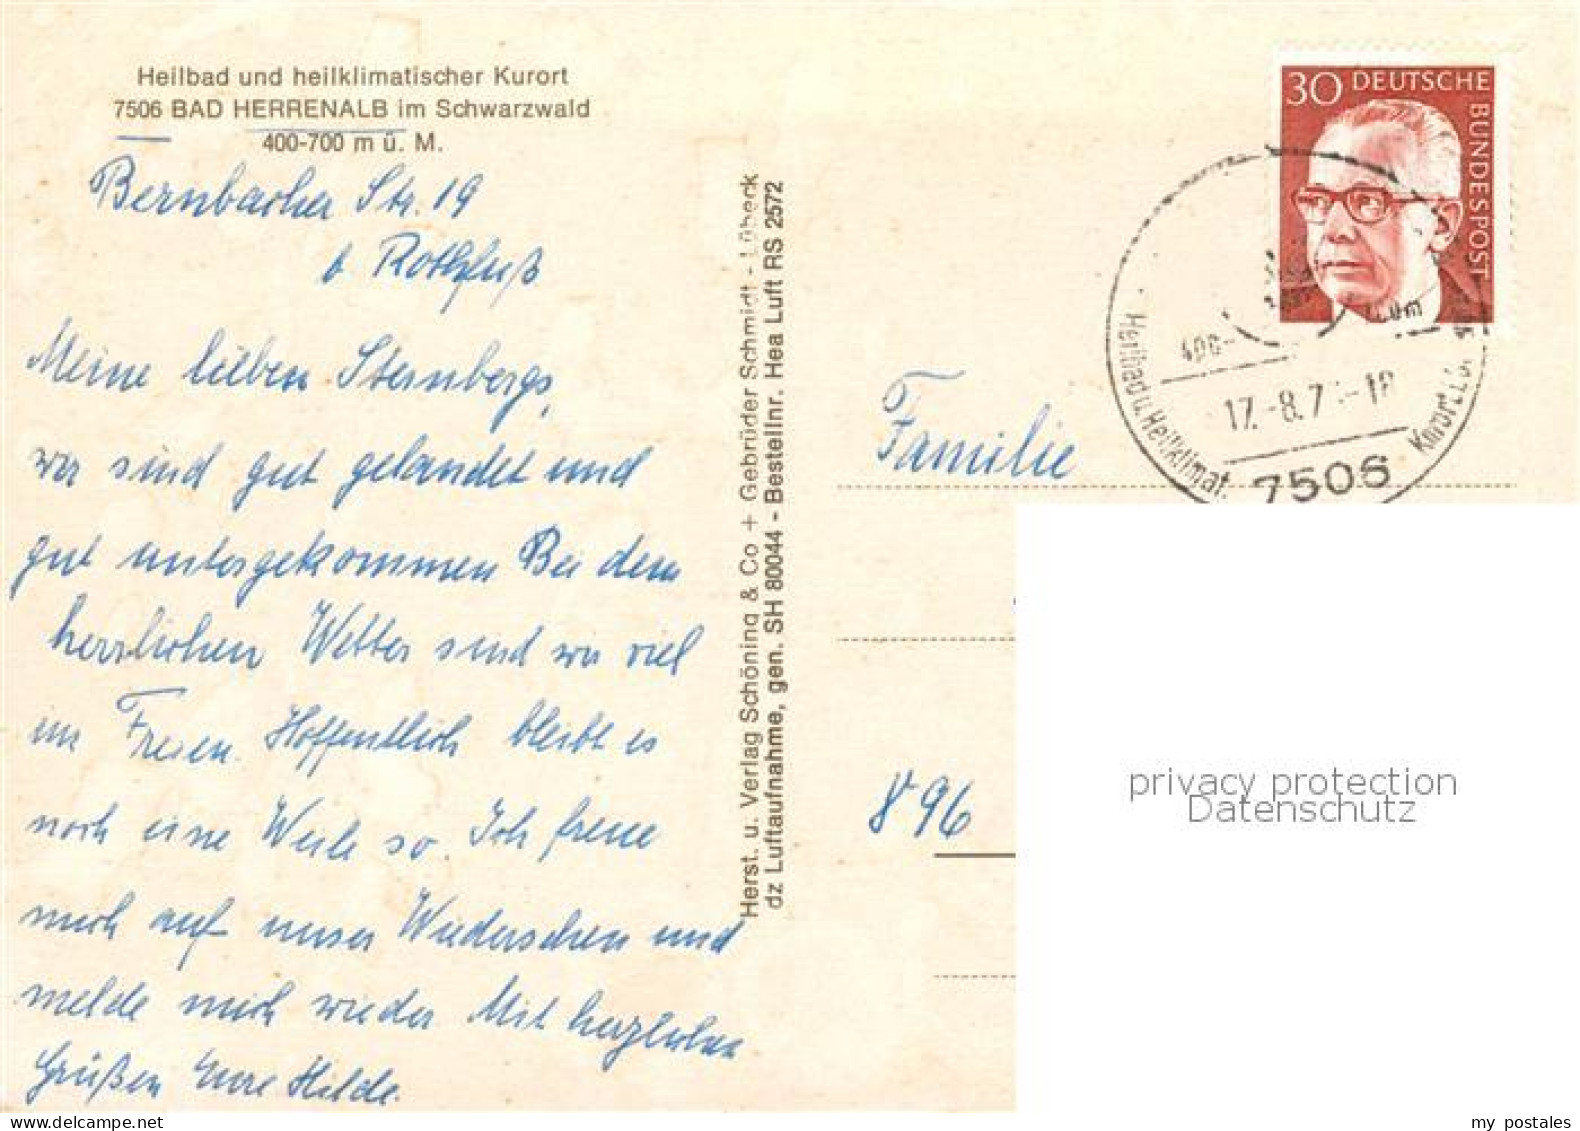 Heilbad und heilklimatischer Kurort
7506 BAD HERRENALB im Schwarzwald
400-700 m ü. M.
Bernbacher Str. 19
b. Rothfuß
Meine lieben Sternbergs,
wir sind gut gelandet und
gut untergekommen Bei dem
herrlichen Wetter sind wir viel
im Freien. Hoffentlich bleibt es
noch eine Weile so. Ich freue
mich auf unser Wiedersehen und
melde mich wieder. Mit herzlichen
Grüßen Eure Hilde.
Herst. u. Verlag Schöning & Co + Gebrüder Schmidt - Lübeck
dz Luftaufnahme, gen. SH 80044 - Bestellnr. Hea Luft RS 2572
30 DEUTSCHE
BUNDESPOST
400-
17.-8.7
-18
Heilbad u. Heilklimat.
Kurort
7506
Familie
896
privacy protection
Datenschutz
my postales